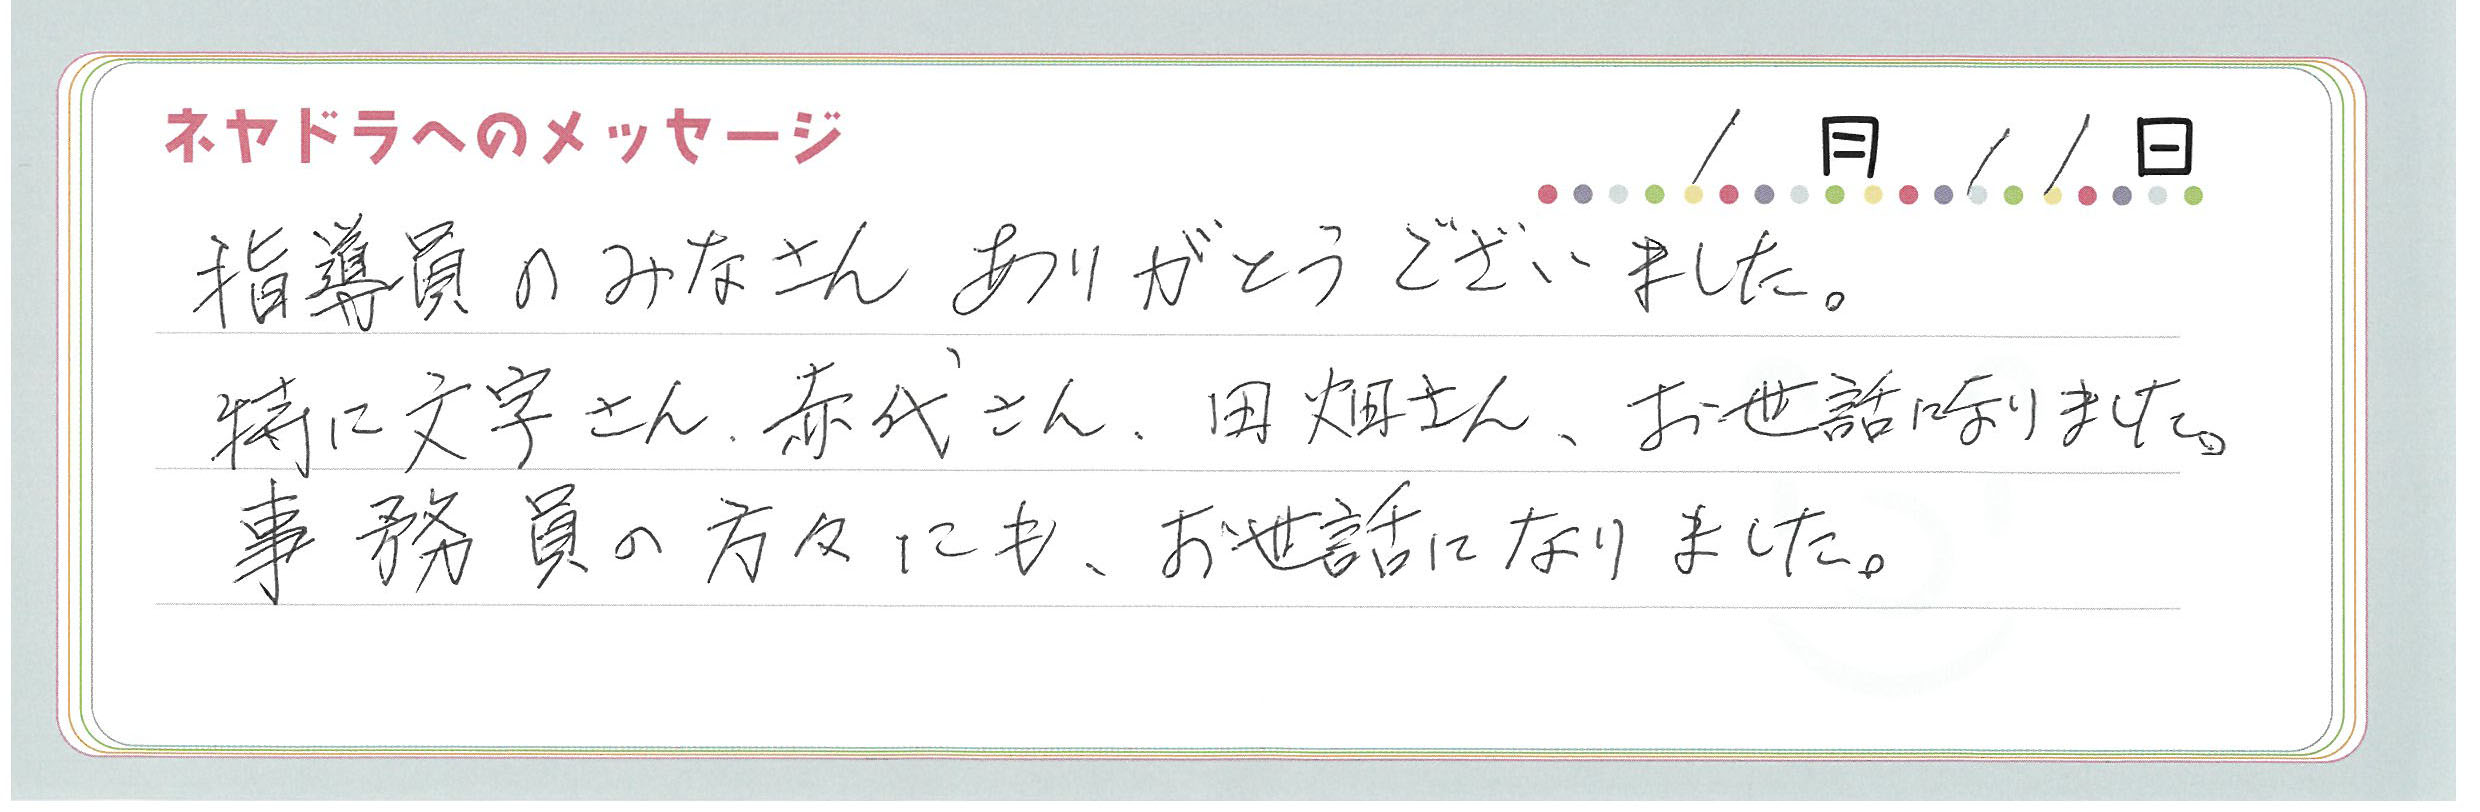 ネヤドラへのメッセージ
1月11日
指導員のみなさんありがとうございました。
特に文字さん、赤代さん、田畑さん、お世話になりました。
事務員の方々にも、お世話になりました。